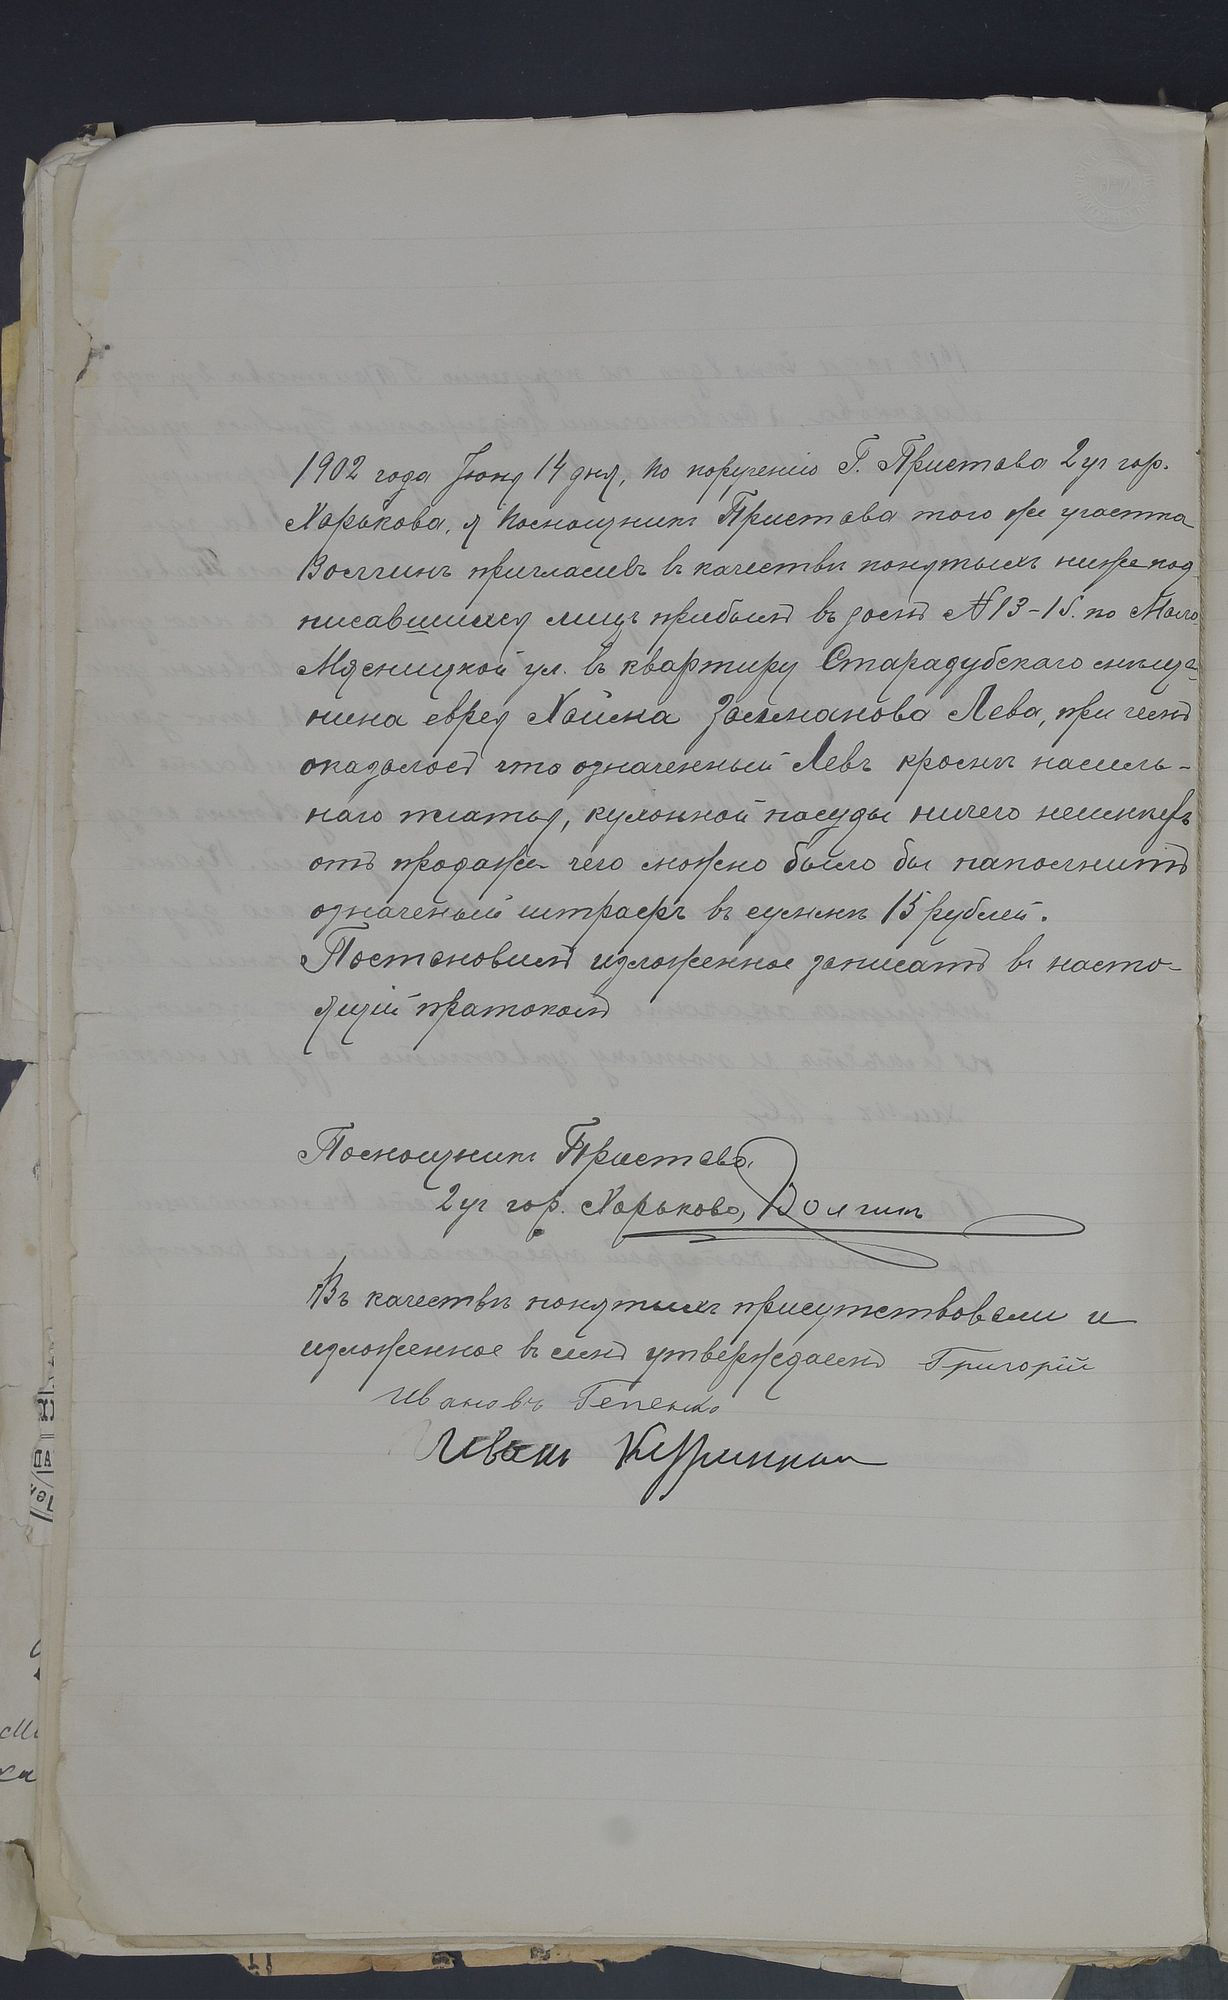 1902 года Іюня 14 дня, по порученію Г. Пристава 2 уч гор.
Харькова, я Помощникъ Пристава того же участка
Волгинъ пригласивъ въ качествѣ понятыхъ нижепод-
писавшихся лицъ прибылъ въ домъ № 13-15. по Мало
Мясницкой ул. въ квартиру Старадубскаго мѣща-
нина еврея Хаима Залманова Лева, при чемъ
оказалось что означенный Левъ кромѣ носиль-
наго платья, кухонной посуды ничего неимѣетъ
отъ продажи чего можно было бы пополнить
означеный штрафъ въ суммѣ 15 рублей.
Постановилъ изложенное записать въ насто-
ящій пратоколъ
Помощникъ Пристава
2 уч гор. Харькова, Волгинъ
Въ качествѣ понятыхъ присутствовали и
изложенное въ семъ утверждаемъ Григорій
Ивановъ
Иванъ